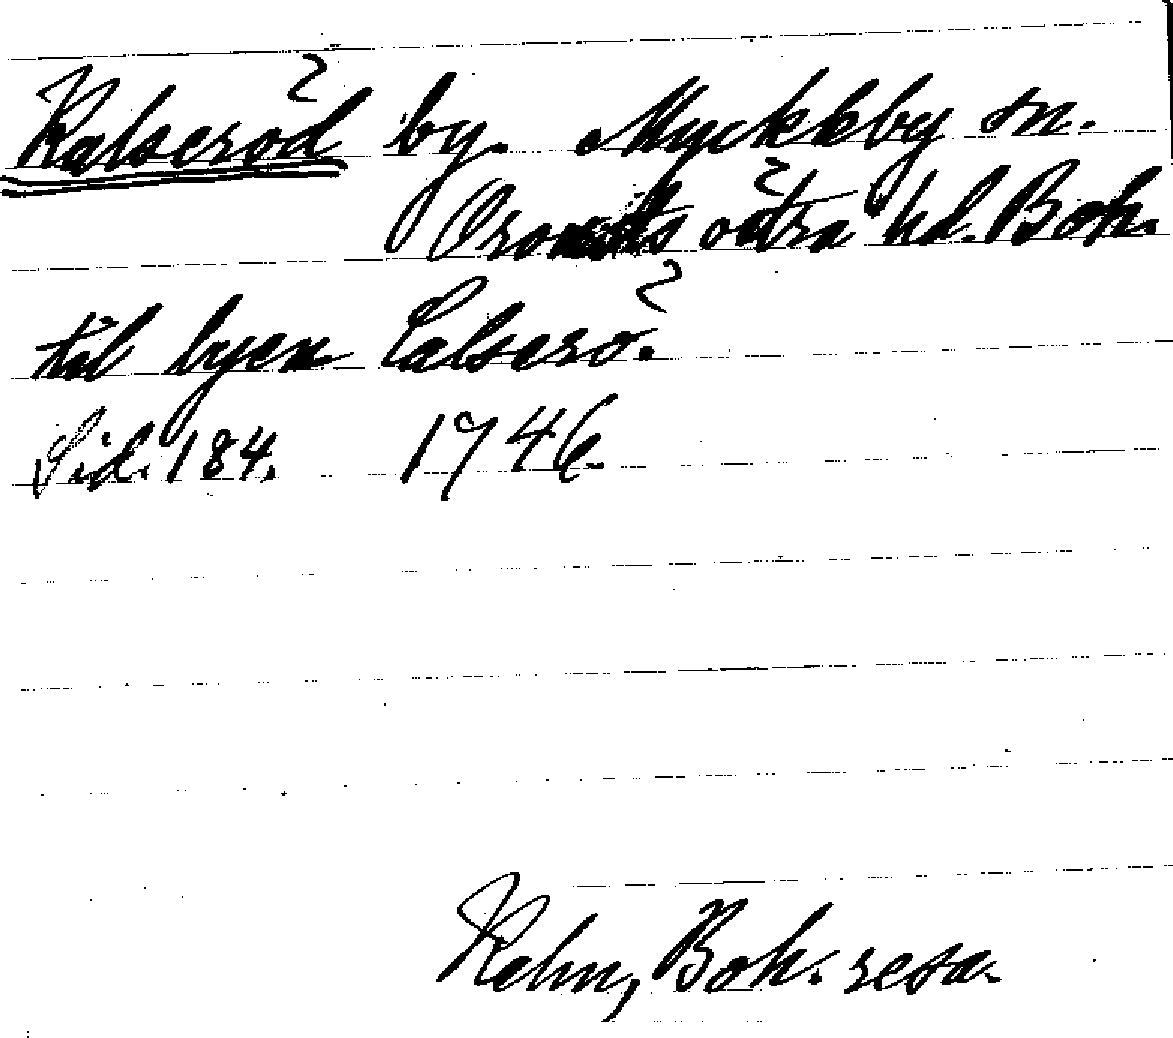 Kalseröd by. Myckleby sn.
Orousts östra hd. Boh.
til byen Calserö.
Sid. 184. 1746.
Kalm, Boh. resa.